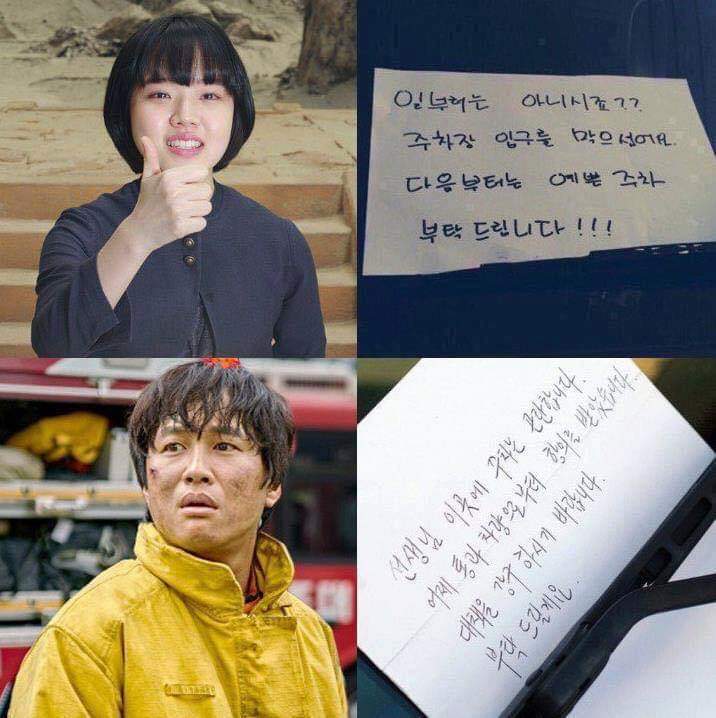 일부러는 아니시죠??
주차장 입구를 막으셨어요.
다음부터는 예쁜 주차
부탁 드립니다!!!
선생님 이곳에 주차는 곤란합니다.
어제 통과 차량으로부터 항의를 받았습니다.
대책을 강구 하시기 바랍니다.
부탁 드릴게요.